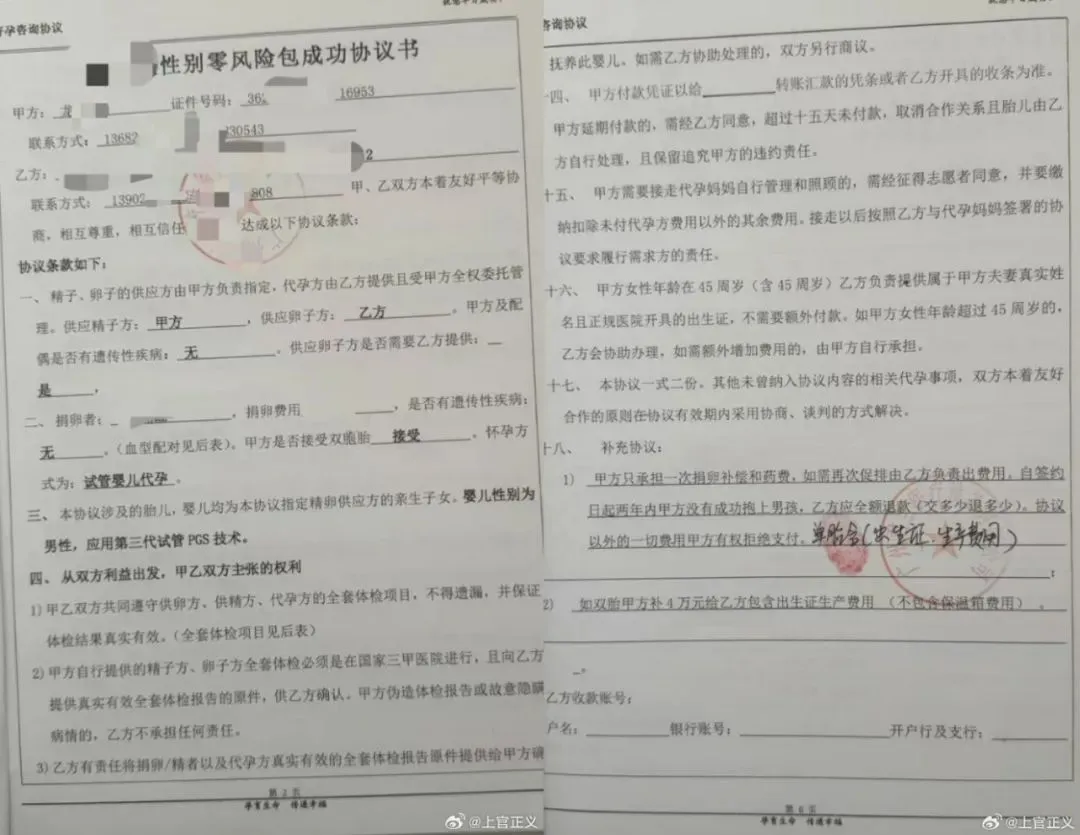 好孕咨询协议
性别零风险包成功协议书
甲方：龙
证件号码：362 16953
联系方式：13682 J30543
乙方： 2
联系方式：13902 808 甲、乙双方本着友好平等协
商，相互尊重，相互信任 达成以下协议条款：
协议条款如下：
一、 精子、卵子的供应方由甲方负责指定，代孕方由乙方提供且受甲方全权委托管
理。供应精子方： 甲方 ，供应卵子方： 乙方 。甲方及配
偶是否有遗传性疾病： 无 。供应卵子方是否需要乙方提供：
是 ，
二、 捐卵者： ，捐卵费用 ，是否有遗传性疾病：
无 。（血型配对见后表）。甲方是否接受双胞胎 接受 。怀孕方
式为：试管婴儿代孕 。
三、 本协议涉及的胎儿，婴儿均为本协议指定精卵供应方的亲生子女。婴儿性别为
男性，应用第三代试管 PGS 技术。
四、 从双方利益出发，甲乙双方主张的权利
1）甲乙双方共同遵守供卵方、供精方、代孕方的全套体检项目，不得遗漏，并保证
体检结果真实有效。（全套体检项目见后表）
2）甲方自行提供的精子方、卵子方全套体检必须是在国家三甲医院进行，且向乙方
提供真实有效全套体检报告的原件，供乙方确认。甲方伪造体检报告或故意隐瞒
病情的，乙方不承担任何责任。
3）乙方有责任将捐卵/精者以及代孕方真实有效的全套体检报告原件提供给甲方确
第 2 页
孕育生命 传递幸福
咨询协议
抚养此婴儿。如需乙方协助处理的，双方另行商议。
十四、 甲方付款凭证以给 转账汇款的凭条或者乙方开具的收条为准。
甲方延期付款的，需经乙方同意，超过十五天未付款，取消合作关系且胎儿由乙
方自行处理，且保留追究甲方的违约责任。
十五、 甲方需要接走代孕妈妈自行管理和照顾的，需经征得志愿者同意，并要缴
纳扣除未付代孕方费用以外的其余费用。接走以后按照乙方与代孕妈妈签署的协
议要求履行需求方的责任。
十六、 甲方女性年龄在 45 周岁（含 45 周岁）乙方负责提供属于甲方夫妻真实姓
名且正规医院开具的出生证，不需要额外付款。如甲方女性年龄超过 45 周岁的，
乙方会协助办理，如需额外增加费用的，由甲方自行承担。
十七、 本协议一式二份。其他未曾纳入协议内容的相关代孕事项，双方本着友好
合作的原则在协议有效期内采用协商、谈判的方式解决。
十八、 补充协议：
1） 甲方只承担一次捐卵补偿和药费，如需再次促排由乙方负责出费用，自签约
日起两年内甲方没有成功抱上男孩，乙方应全额退款（交多少退多少）。协议
以外的一切费用甲方有权拒绝支付。单胎含(出生证.生产费用)
；
2） 如双胎甲方补 4 万元给乙方包含出生证生产费用 （不包含保温箱费用） 。
。
乙方收款账号：
户名： 银行账号： 开户行及支行：
第 6 页
孕育生命 传递幸福
@上官正义
@上官正义